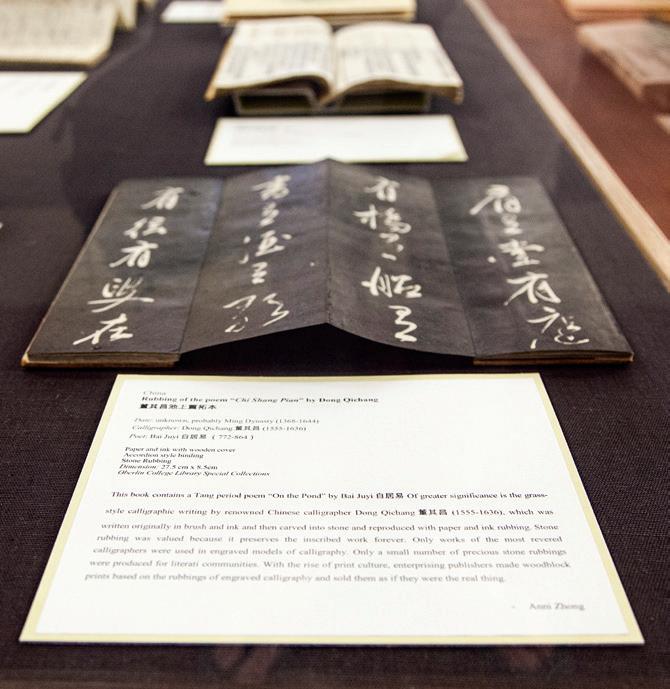 有堂有庭
有橋有船有
書有酒有歌
有弦有叟在
China
Rubbing of the poem “Chi Shang Pian” by Dong Qichang
董其昌池上篇拓本
Date: unknown, probably Ming Dynasty (1368-1644)
Calligrapher: Dong Qichang 董其昌 (1555-1636)
Poet: Bai Juyi 白居易 ( 772-864 )
Paper and ink with wooden cover
Accordion style binding
Stone Rubbing
Dimension 27.5 cm x 8.5cm
Oberlin College Library Special Collections
This book contains a Tang period poem “On the Pond” by Bai Juyi 白居易 Of greater significance is the grass-
style calligraphic writing by renowned Chinese calligrapher Dong Qichang 董其昌 (1555-1636), which was
written originally in brush and ink and then carved into stone and reproduced with paper and ink rubbing. Stone
rubbing was valued because it preserves the inscribed work forever. Only works of the most revered
calligraphers were used in engraved models of calligraphy. Only a small number of precious stone rubbings
were produced for literati communities. With the rise of print culture, enterprising publishers made woodblock
prints based on the rubbings of engraved calligraphy and sold them as if they were the real thing.
- Anni Zhong